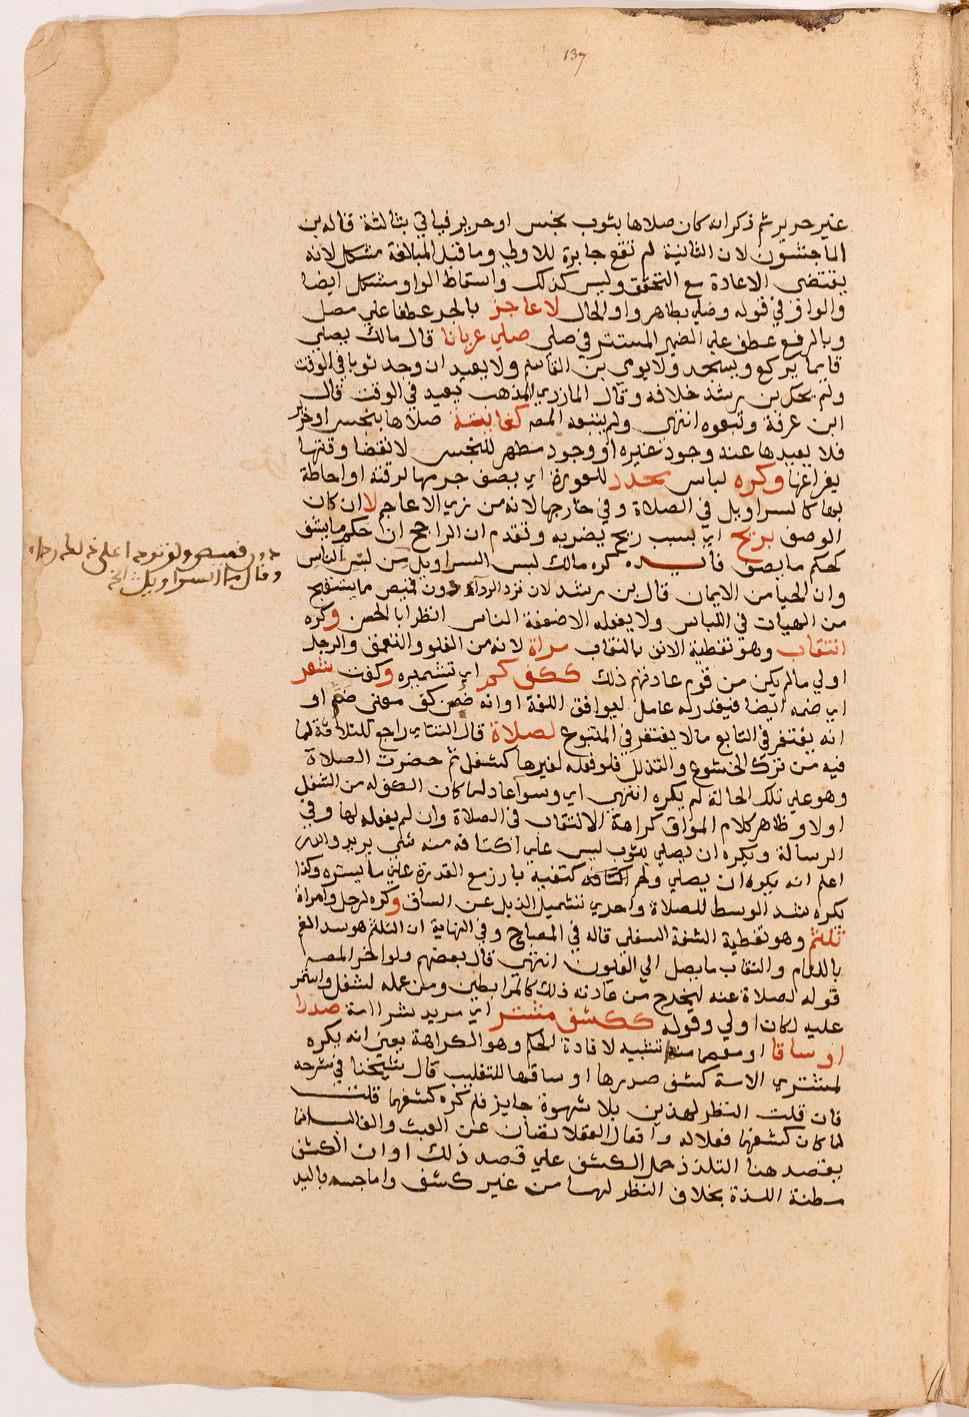 137
غير حرير ثم ذكر انه كان صلاها بثوب نجس او حرير فياتي بثالثة قاله بن
الماجشون لان الثانية لم تقع جابرة للاولي وما قبل المبالغة مشكل لانه
يقتضي الاعادة مع التحقق وليس كذلك واسقاط الواو مشكل ايضا
والواو في قوله وصلي بطاهر واو الحال لا عاجز بالجر عطفا علي مصل
وبالرفع عطف علي الضمير المستتر في صلي صلي عريانا قال مالك يصلي
قايما يركع ويسجد ولا يومي بن القاسم ولا يعيد ان وجد ثوبا في الوقت
ولم يحك بن رشد خلافه وقال المازري المذهب يعيد في الوقت قال
ابن عرفة وتبعوه انتهي ولم يتبعه المص كفايتة صلاها بنجس او حرير
فلا يعيدها عند وجود غيره او وجود مطهر للنجس لانقضا وقتها
بفراغها وكره لباس محدد للعورة اي يصف جرمها لرقته او احاطة
بها كالسراويل في الصلاة وفي خارجها لانه من زي الاعاجم لا ان كان
الوصف بريح اي بسبب ريح يضربه وتقدم ان الراجح ان حكم ما يشف
كحكم ما يصف فايده كره مالك لبس السراويل بين الناس
وان الحيا من الايمان قال بن رشد لان تردا الرداء دون قميص مما يستقبح
من الهيات في اللباس ولا يفعله الا ضعفة الناس انظر ابا الحسن وكره
انتقاب وهو تغطية الانف بالنقاب مراة لانه من الغلو والتعمق والرجل
اولي ما لم يكن من قوم عادتهم ذلك ككف كم اي تشميره وكفت شعر
اي ضمه ايضا فيقدر له عامل ليوافق اللغة او انه ضمن كف معني ضم او
انه يغتفر في التابع ما لا يغتفر في المتبوع لصلاة قال التتاي راجع للثلاثة لما
فيه من ترك الخشوع والتذلل فلو فعله لغيرها كشغل ثم حضرت الصلاة
وهو علي تلك الحالة لم يكره انتهي اي وسوا عاد لما كان الكف له من الشغل
اولا وظاهر كلام المواق كراهة الانتقاب في الصلاة وان لم يفعله لها وفي
الرسالة ويكره ان يصلي بثوب ليس علي اكتافه منه شي يريد والله
اعلم انه يكره ان يصلي ولم اكتافه كتفيه بارز مع القدرة علي ما يستره وكذا
يكره شد الوسط للصلاة واحري تشميل الذيل عن الساق وكره لرجل وامراة
تلثم وهو تغطية الشفة السفلي قاله في المصباح وفي النهاية ان التلثم هو سد الفم
باللثام والنقاب ما يصل الي العيون انتهي قال بعضهم ولو اخر المص
قوله لصلاة عنه ليخرج من عادته ذلك كالمرابطين ومن عمله لشغل واستمر
عليه لكان اولي وقوله ككشف مشتر اي مريد شرا امة صدرا
او ساقا او تشبيه لافادة الحكم وهو الكراهة يعني انه يكره
لمشتري الامة كشف صدرها او ساقها للتقليب قال شيخنا في شرحه
فان قلت النظر لهذين بلا شهوة جايز فلم كره كشفهما قلت
لما كان كشفهما فعلا له وافعال العقلا تصان عن العبث والغالب انما
يقصد هنا التلذذ حمل الكشف علي قصد ذلك او ان الكشف
مظنة اللذة بخلاف النظر لهما من غير كشف واما جسه باليد
دون قميص
وقال السراويل الخ